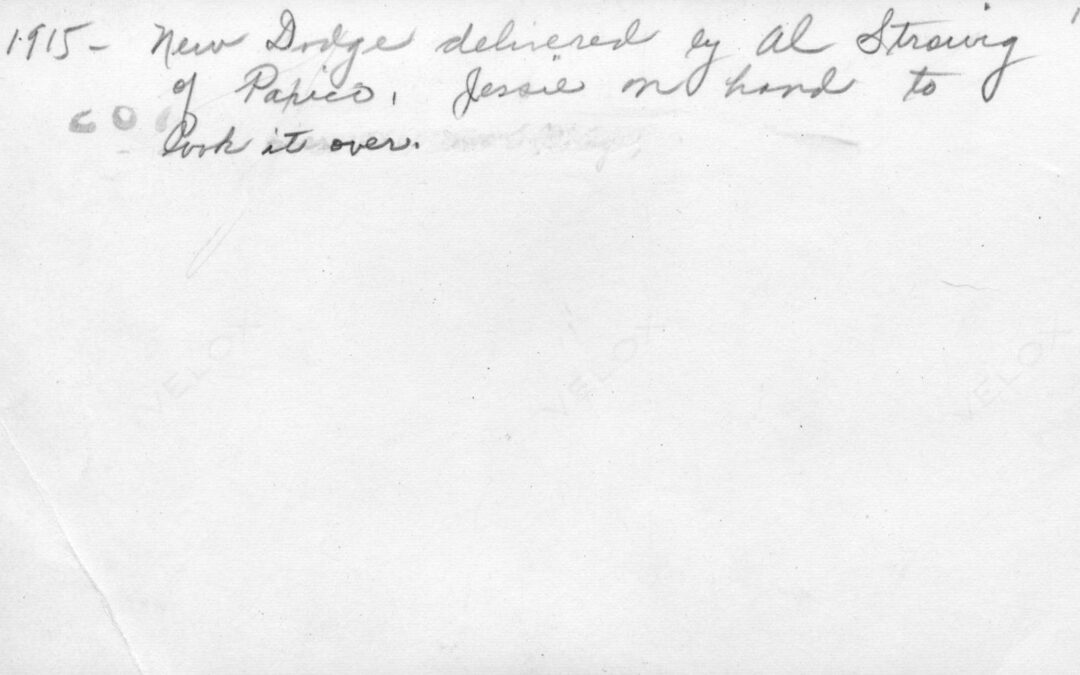 1915- New Dodge delivered by Al Strowig
of Paxico. Jessie on hand to
look it over.
VELOX VELOX VELOX